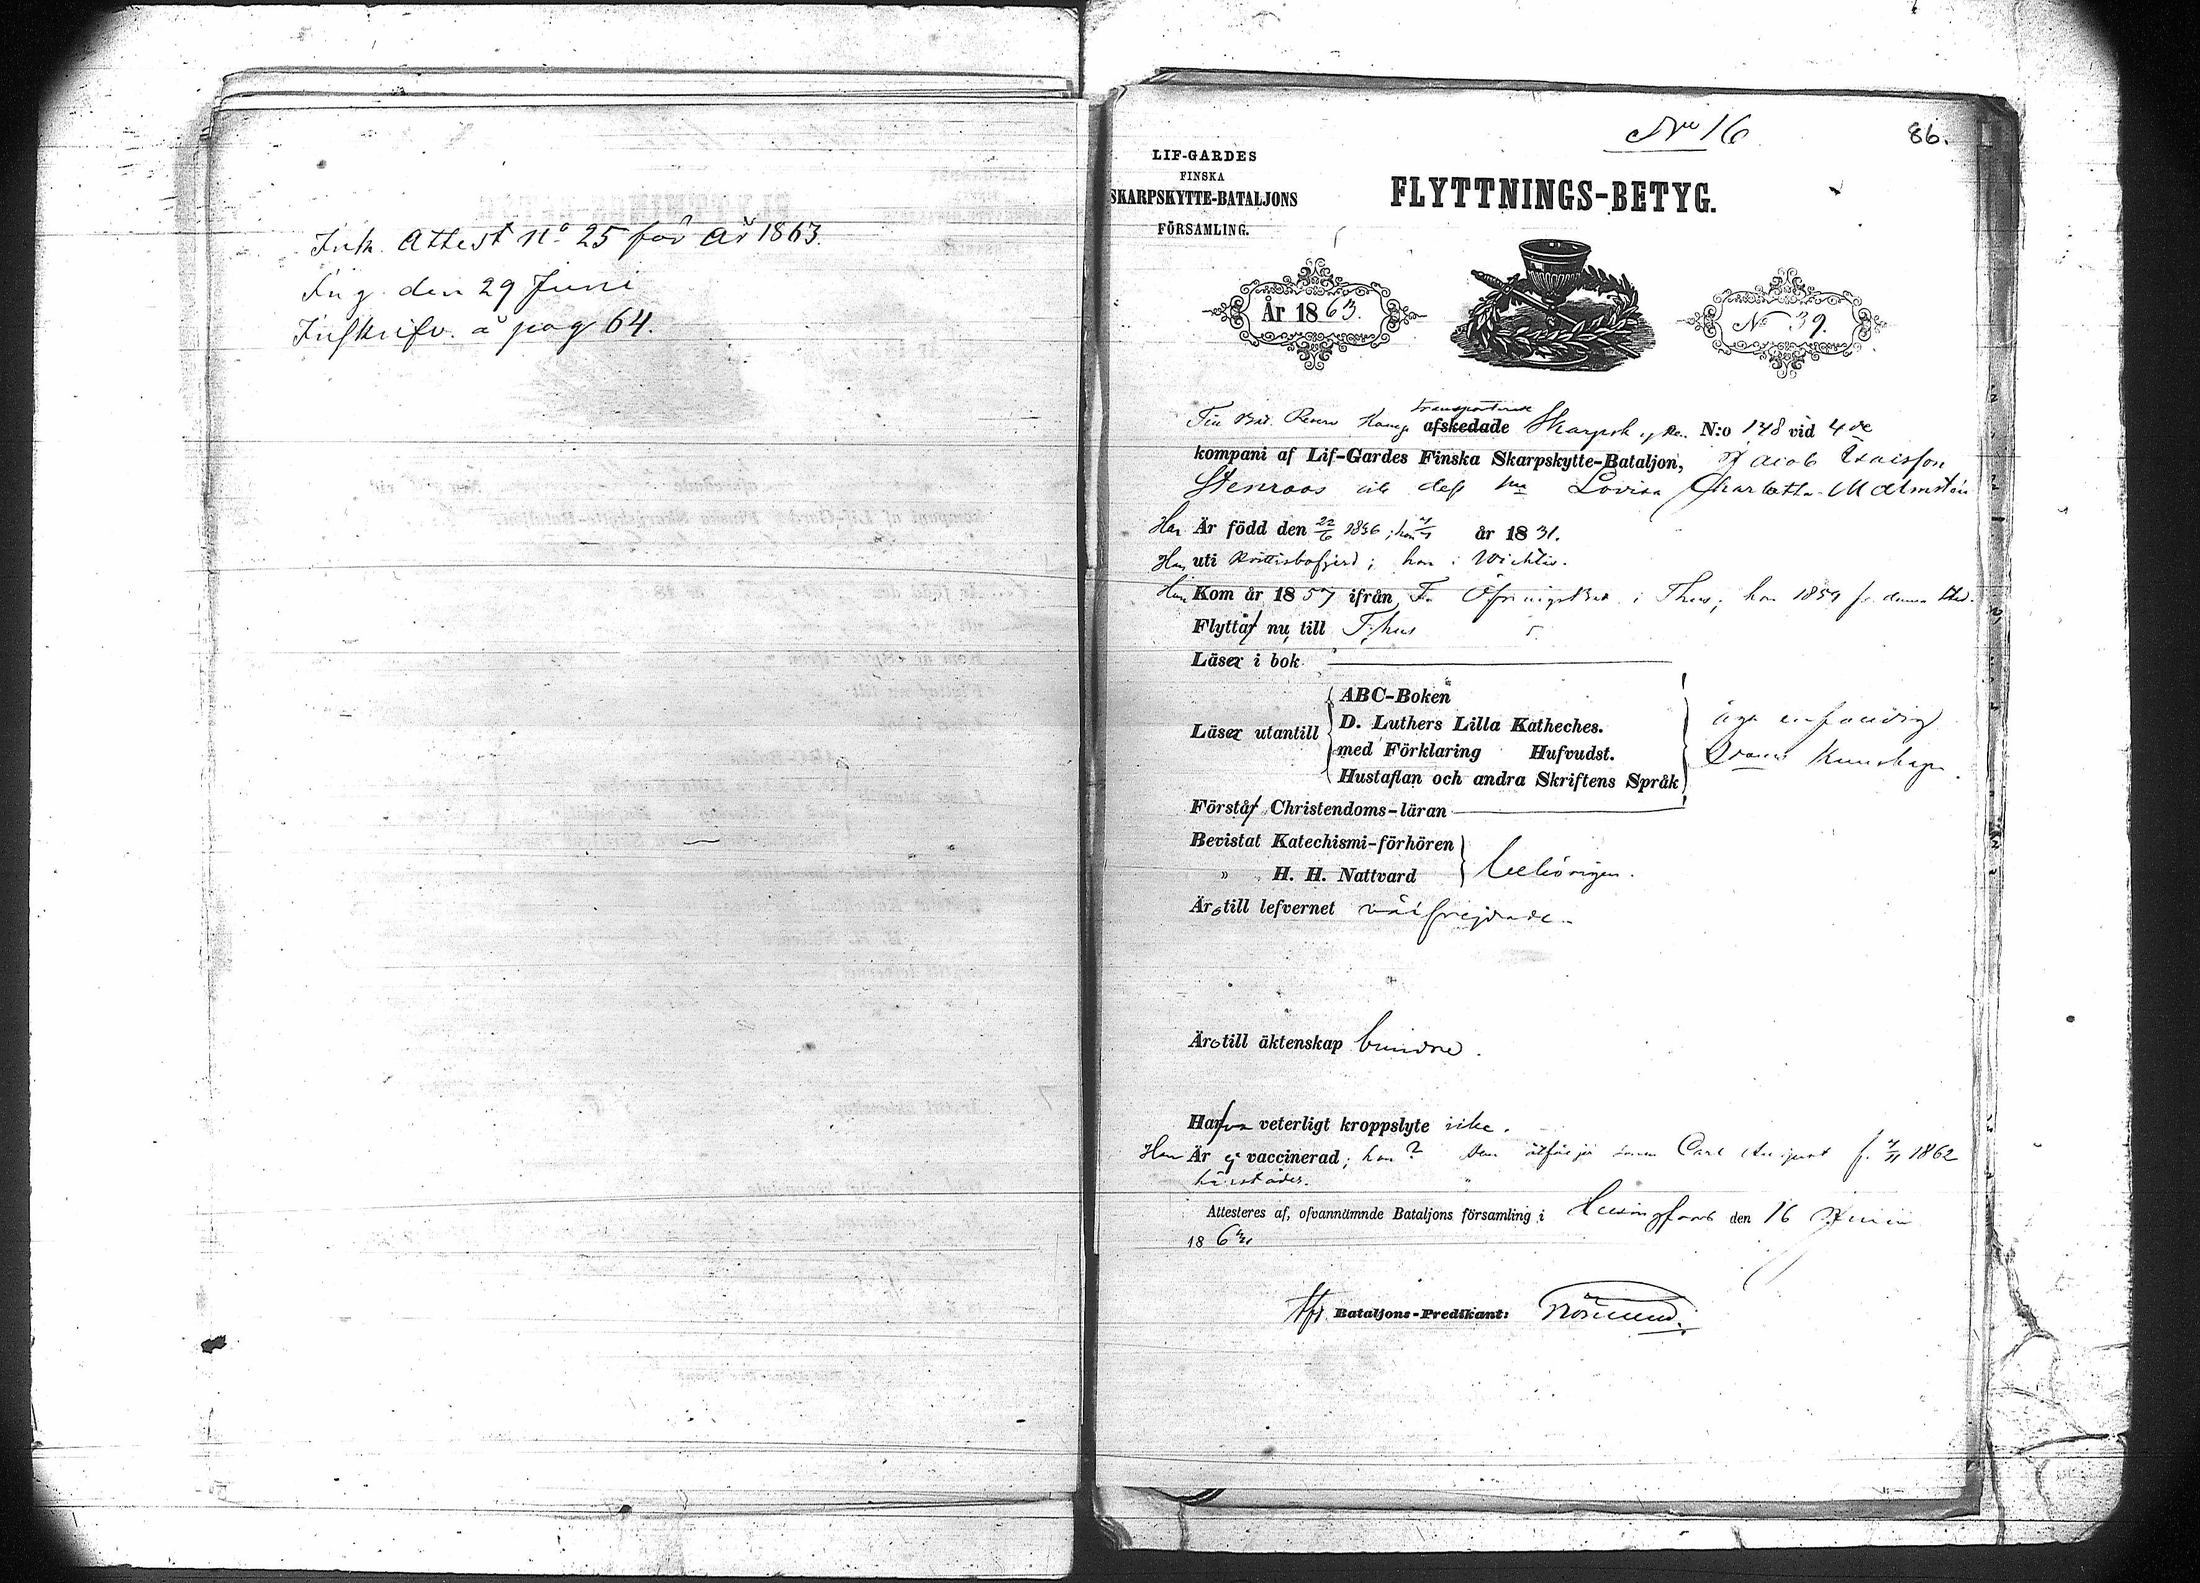 Ink. Attest No 25 för år 1863.
Ing. den 29 Juni
Inskrifv. å pag 64.
No 16
86.
LIF-GARDES
FINSKA
SKARPSKYTTE-BATALJONS
FÖRSAMLING.
FLYTTNINGS-BETYG.
År 1863.
No 39.
transporterade
Till Reserv afskedade Skarpsk. N:o 148 vid 4de
kompani af Lif-Gardes Finska Skarpskytte-Bataljon, Jacob
Stenroos dess hu Lovisa Charlotta Malmstén
Han Är född den 22/6 1836; hon år 1831.
Han uti hon i Wichtis.
Han Kom år 1857 ifrån F. i Thus; hon 1859 fr.
Flyttar nu till T:hus
Läser i bok
Läser utantill
ABC-Boken
D. Luthers Lilla Katheches.
med Förklaring Hufvudst.
Hustaflan och andra Skriftens Språk
äga enfaldig
Xtendoms kunskap.
Förstår Christendoms-läran
Bevistat Katechismi-förhören
" H. H. Nattvard
behörigen.
Äro till lefvernet välfrejdade.
Äro till äktenskap bundne.
Hafva veterligt kroppslyte icke.
Han Är ej vaccinerad; hon? Dem åtföljer sonen Carl August f. 1862
härstädes.
Attesteres af, ofvannämnde Bataljons församling i Helsingfors den 16 Junii
1863
Bataljons-Predikant: